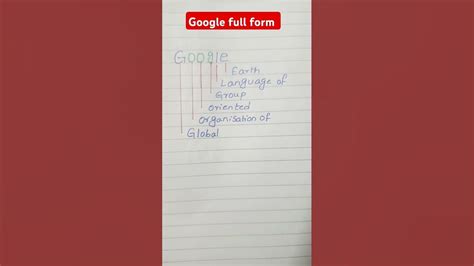 Google full form
Google
Earth
Language of
Group
oriented
organisation of
Global